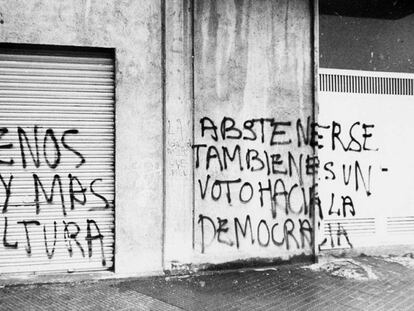 ENOS
Y MAS
LTURA
ABSTENERSE
TAMBIEN ES UN
VOTO HACIA LA
DEMOCRACIA